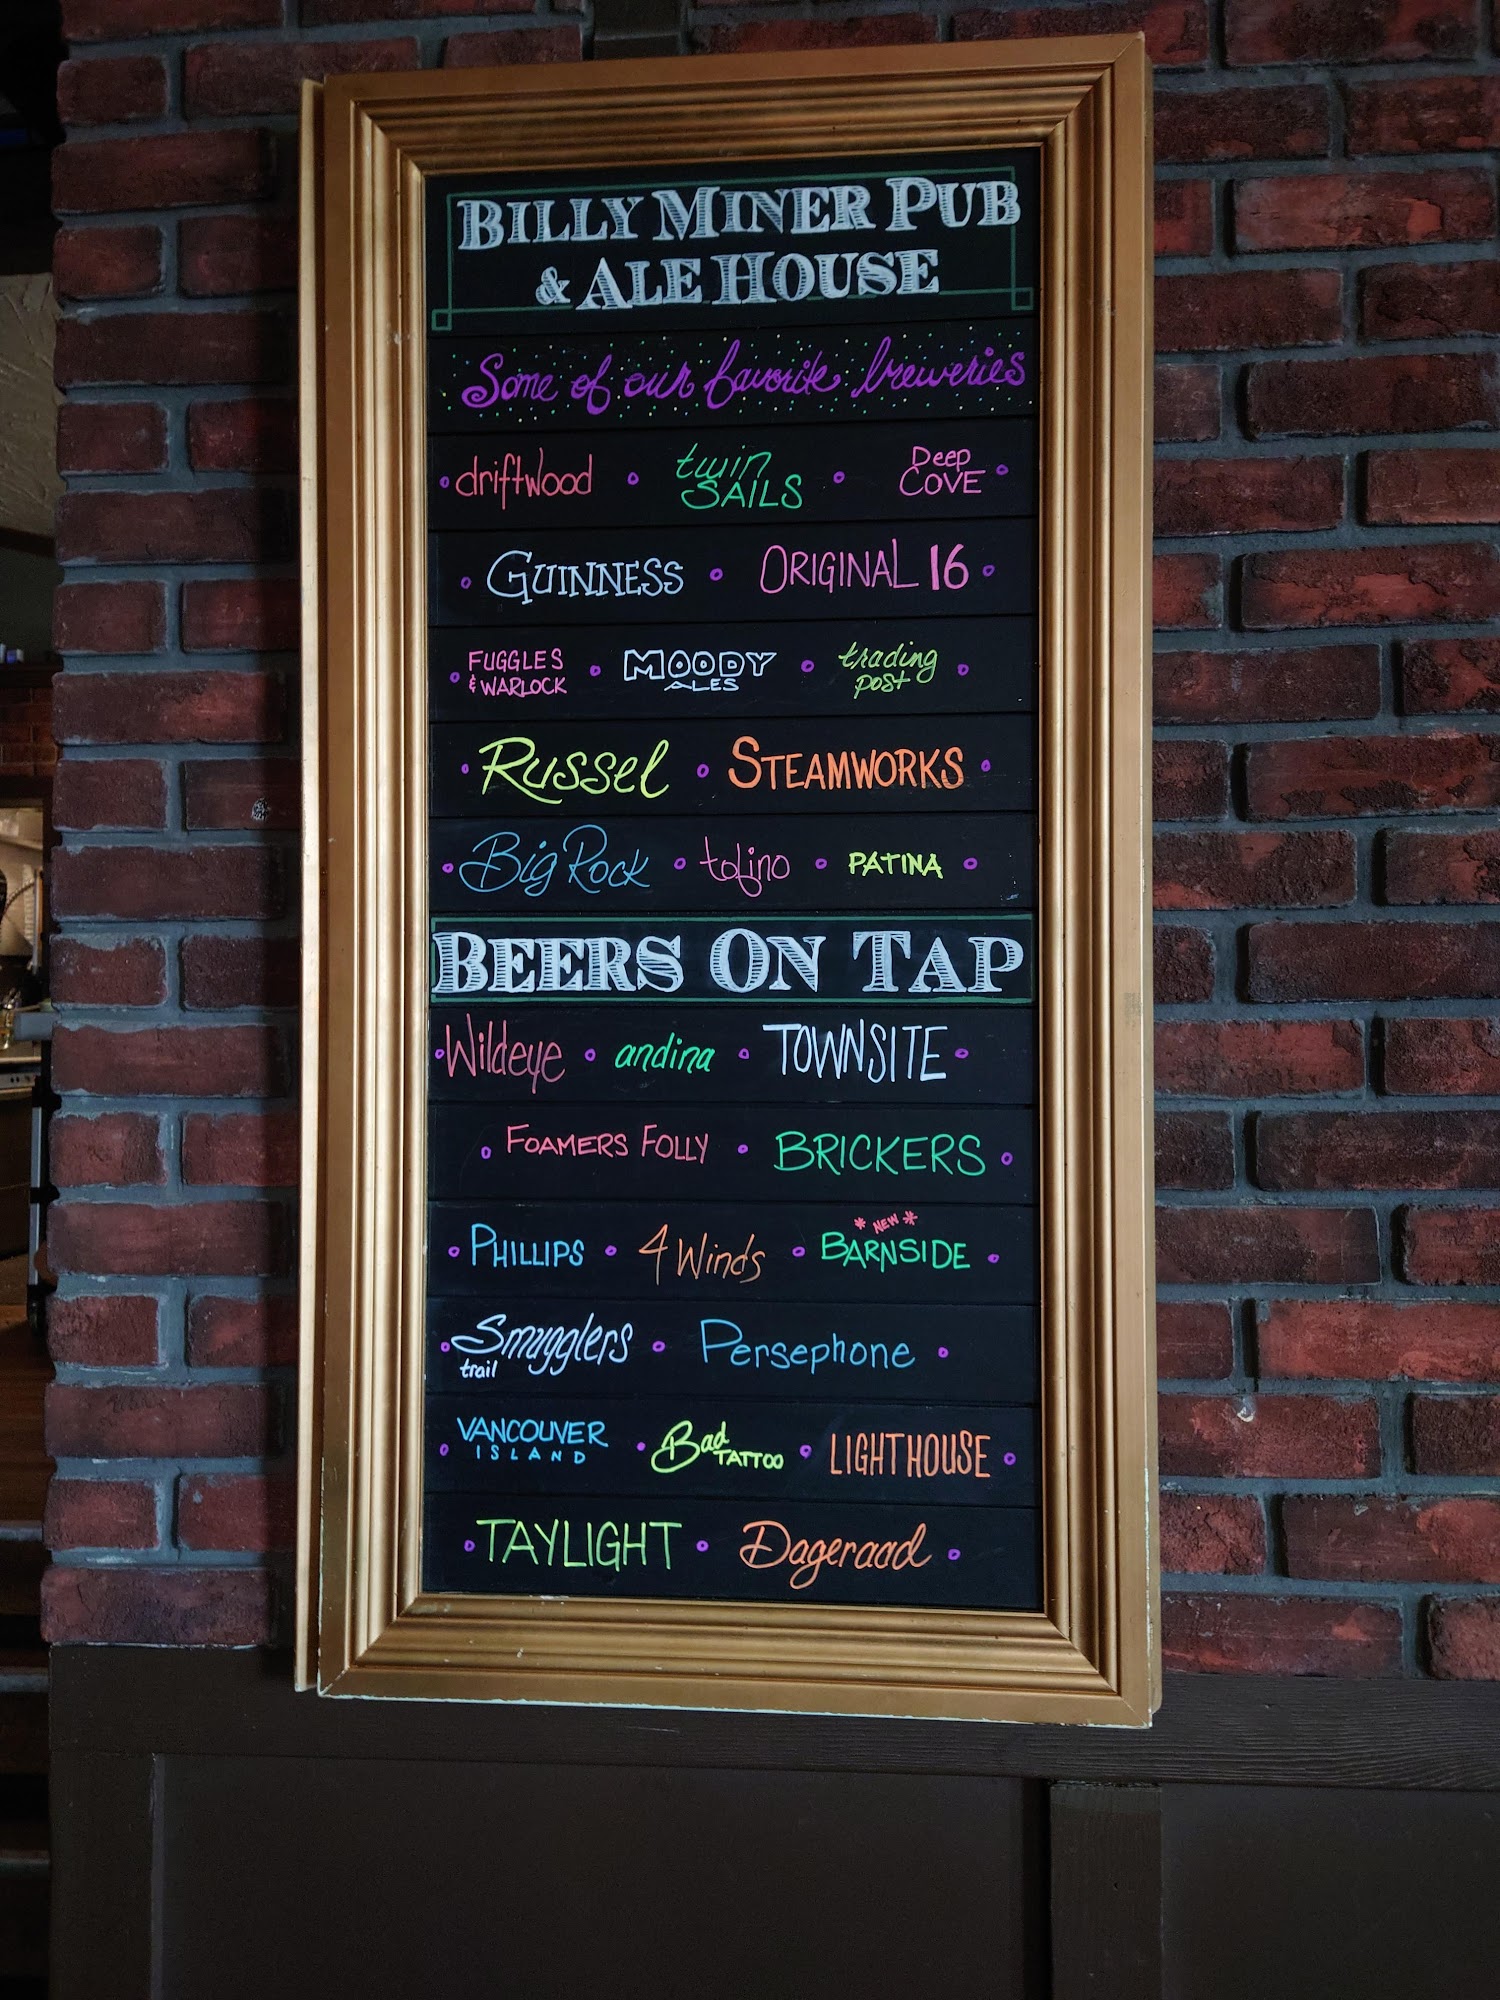 BILLY MINER PUB
& ALE HOUSE
Some of our favorite breweries
driftwood • twin SAILS • Deep COVE
GUINNESS • ORIGINAL 16
FUGGLES & WARLOCK • MOODY ALES • trading post
Russel • STEAMWORKS
Big Rock • tofino • PATINA
BEERS ON TAP
Wildeye • andina • TOWNSITE
FOAMERS FOLLY • BRICKERS
PHILLIPS • 4 Winds • * NEW * BARNSIDE
Smugglers trail • Persephone
VANCOUVER ISLAND • Bad TATTOO • LIGHTHOUSE
TAYLIGHT • Dageraad